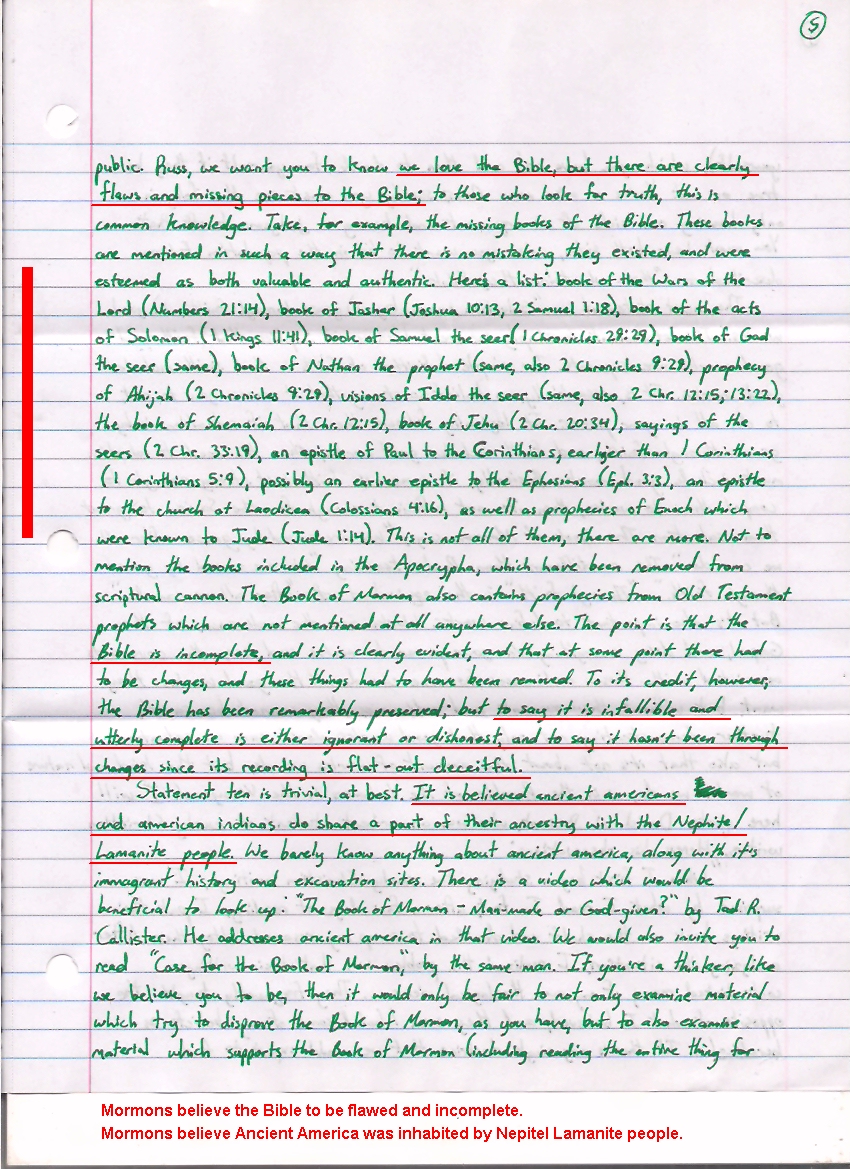 5
public. Russ, we want you to know we love the Bible, but there are clearly
flaws and missing pieces to the Bible; to those who look for truth, this is
common knowledge. Take, for example, the missing books of the Bible. These books
are mentioned in such a way that there is no mistaking they existed, and were
esteemed as both valuable and authentic. Here's a list: book of the Wars of the
Lord (Numbers 21:14), book of Jasher (Joshua 10:13, 2 Samuel 1:18), book of the acts
of Solomon (1 Kings 11:41), book of Samuel the seer (1 Chronicles 29:29), book of Gad
the seer (same), book of Nathan the prophet (same, also 2 Chronicles 9:29), prophecy
of Ahijah (2 Chronicles 9:29), visions of Iddo the seer (same, also 2 Chr. 12:15; 13:22),
the book of Shemaiah (2 Chr. 12:15), book of Jehu (2 Chr. 20:34), sayings of the
seers (2 Chr. 33:19), an epistle of Paul to the Corinthians, earlier than 1 Corinthians
(1 Corinthians 5:9), possibly an earlier epistle to the Ephesians (Eph. 3:3), an epistle
to the church at Laodicea (Colossians 4:16), as well as prophecies of Enoch which
were known to Jude (Jude 1:14). This is not all of them, there are more. Not to
mention the books included in the Apocrypha, which have been removed from
scriptural cannon. The Book of Mormon also contains prophecies from Old Testament
prophets which are not mentioned at all anywhere else. The point is that the
Bible is incomplete, and it is clearly evident, and that at some point there had
to be changes, and these things had to have been removed. To its credit, however,
the Bible has been remarkably preserved; but to say it is infallible and
utterly complete is either ignorant or dishonest, and to say it hasn't been through
changes since its recording is flat-out deceitful.
Statement ten is trivial, at best. It is believed ancient americans
and american indians do share a part of their ancestry with the Nephite/
Lamanite people. We barely know anything about ancient america, along with it's
immagrant history and excavation sites. There is a video which would be
beneficial to look up: "The Book of Mormon - Man-made or God-given?" by Tad R.
Callister. He addresses ancient america in that video. We would also invite you to
read "Case for the Book of Mormon," by the same man. If you're a thinker, like
we believe you to be, then it would only be fair to not only examine material
which try to disprove the Book of Mormon, as you have, but to also examine
material which supports the Book of Mormon (including reading the entire thing for
Mormons believe the Bible to be flawed and incomplete.
Mormons believe Ancient America was inhabited by Nepitel Lamanite people.